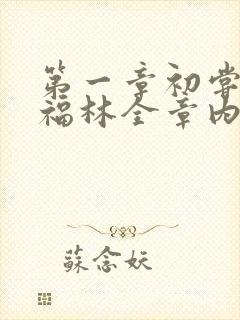 第一章初尝
福林全章内
蘇念妖